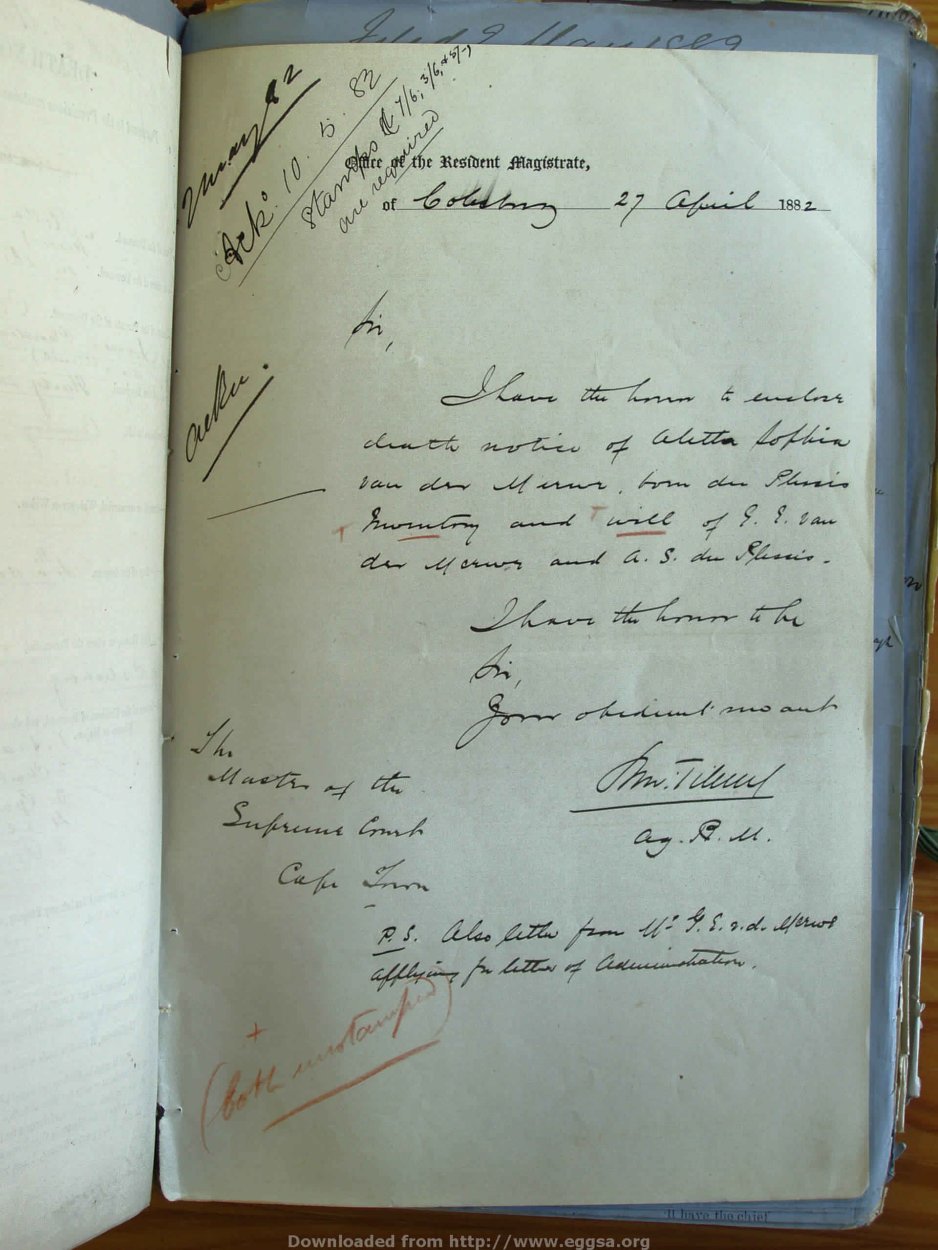 Filed 2 May 1882
2 May 82
Ack. 10. 5. 82
Stamps 7/6; 3/6, & 5/-
are required
Office of the Resident Magistrate,
of Colesburg 27 April 1882
Sir,
I have the honor to enclose
death notice of Aletta Sophia
van der Merwe, born du Plessis
Inventory and will of G. E. van
der Merwe and A. S. du Plessis.
I have the honor to be
Sir,
Your obedient servant
Ag. R. M.
The
Master of the
Supreme Court
Cape Town
P.S. Also letter from Mr G. E. v. d. Merwe
applying for letter of Administration.
(both unstamped)
I have the chief
Downloaded from http://www.eggsa.org